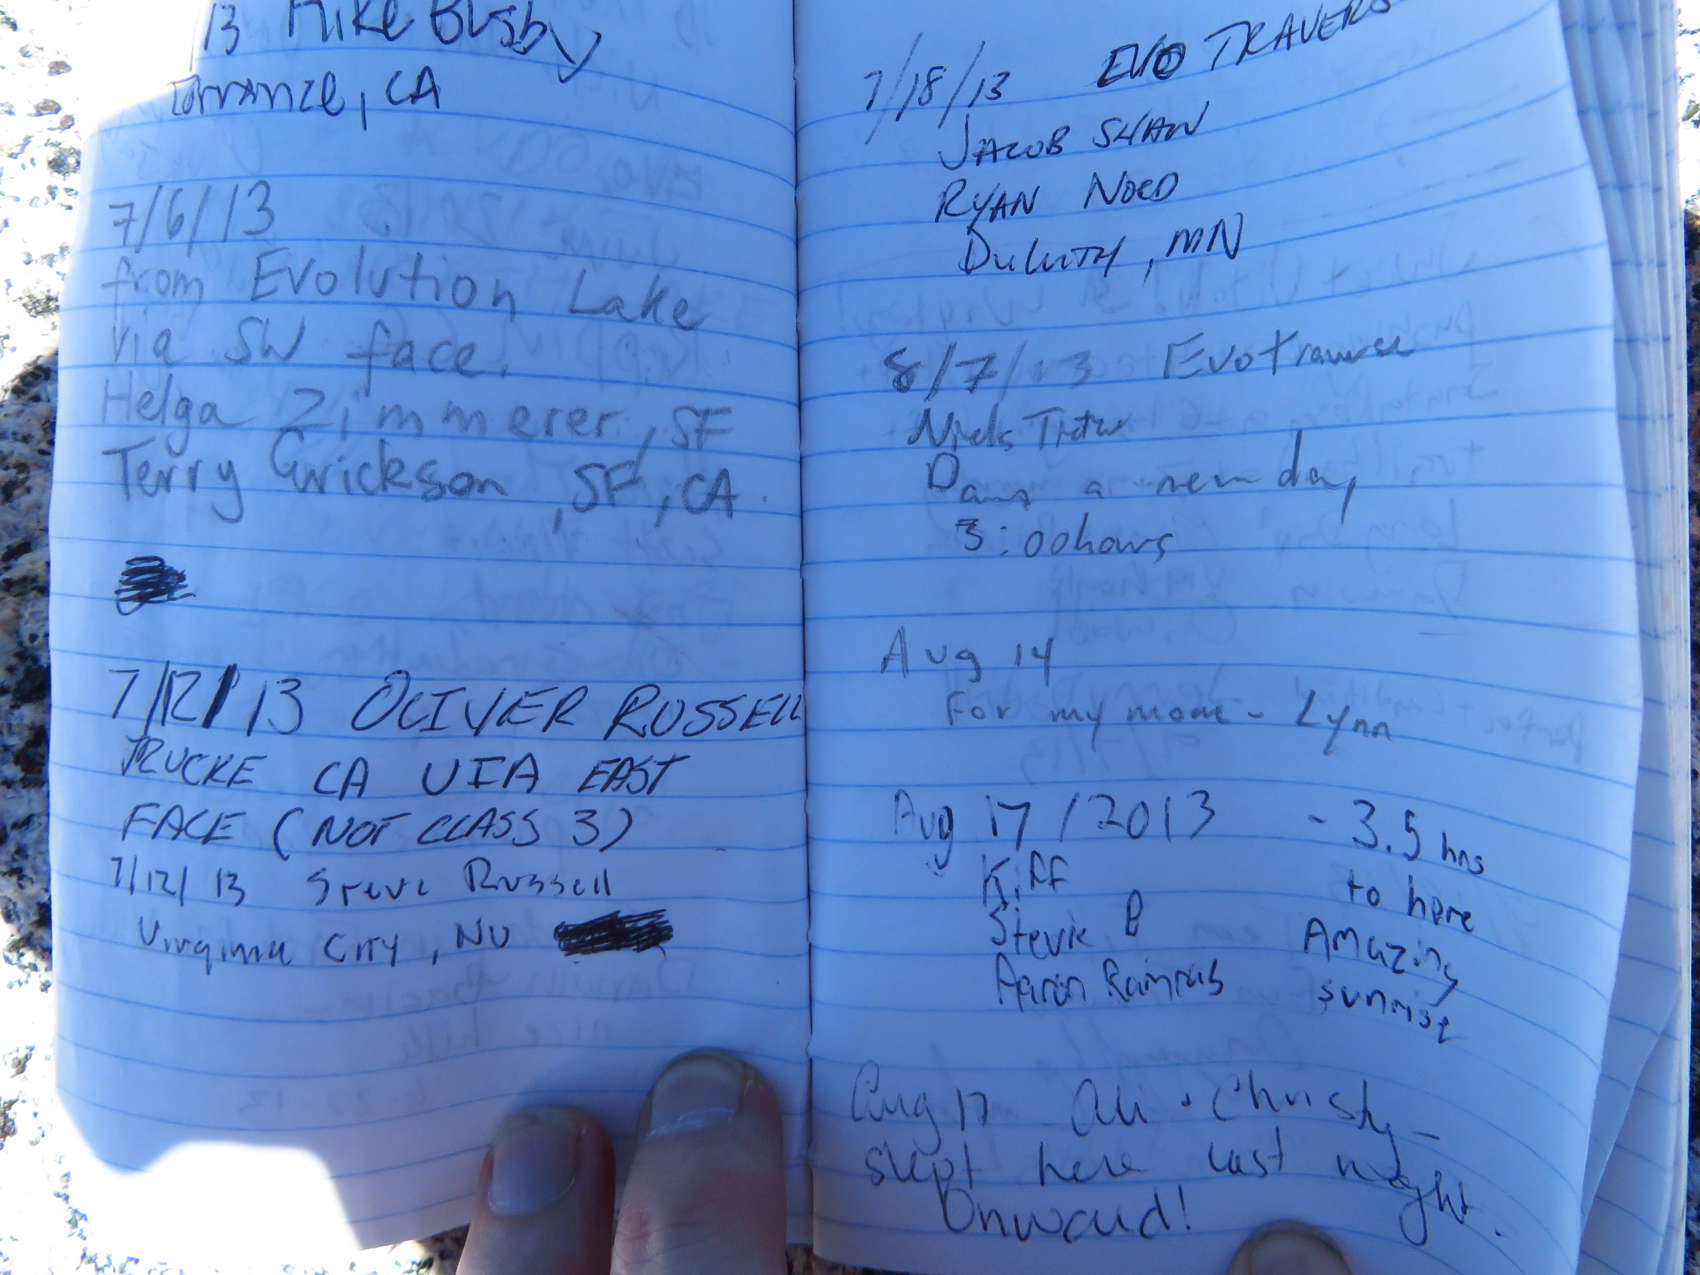 13 Mike Busby
Torrance, CA
7/6/13
from Evolution Lake
via SW face.
Helga Zimmerer, SF
Terry Grickson, SF, CA.
7/12/13 OLIVER RUSSELL
TRUCKE CA VIA EAST
FACE (NOT CLASS 3)
7/12/13 Steve Russell
Virginia City, NV
7/18/13 EVO TRAVERS
JACOB SHAW
RYAN NORD
DULUTH, MN
8/7/13 Evo traverse
Niels
a new day
3:00hours
Aug 14
For my mom - Lynn
Aug 17/2013 - 3.5 hrs
Kiff to here
Stevie B Amazing
Aaron sunrise
Aug 17 Ali + Christy -
slept here last night.
Onward!